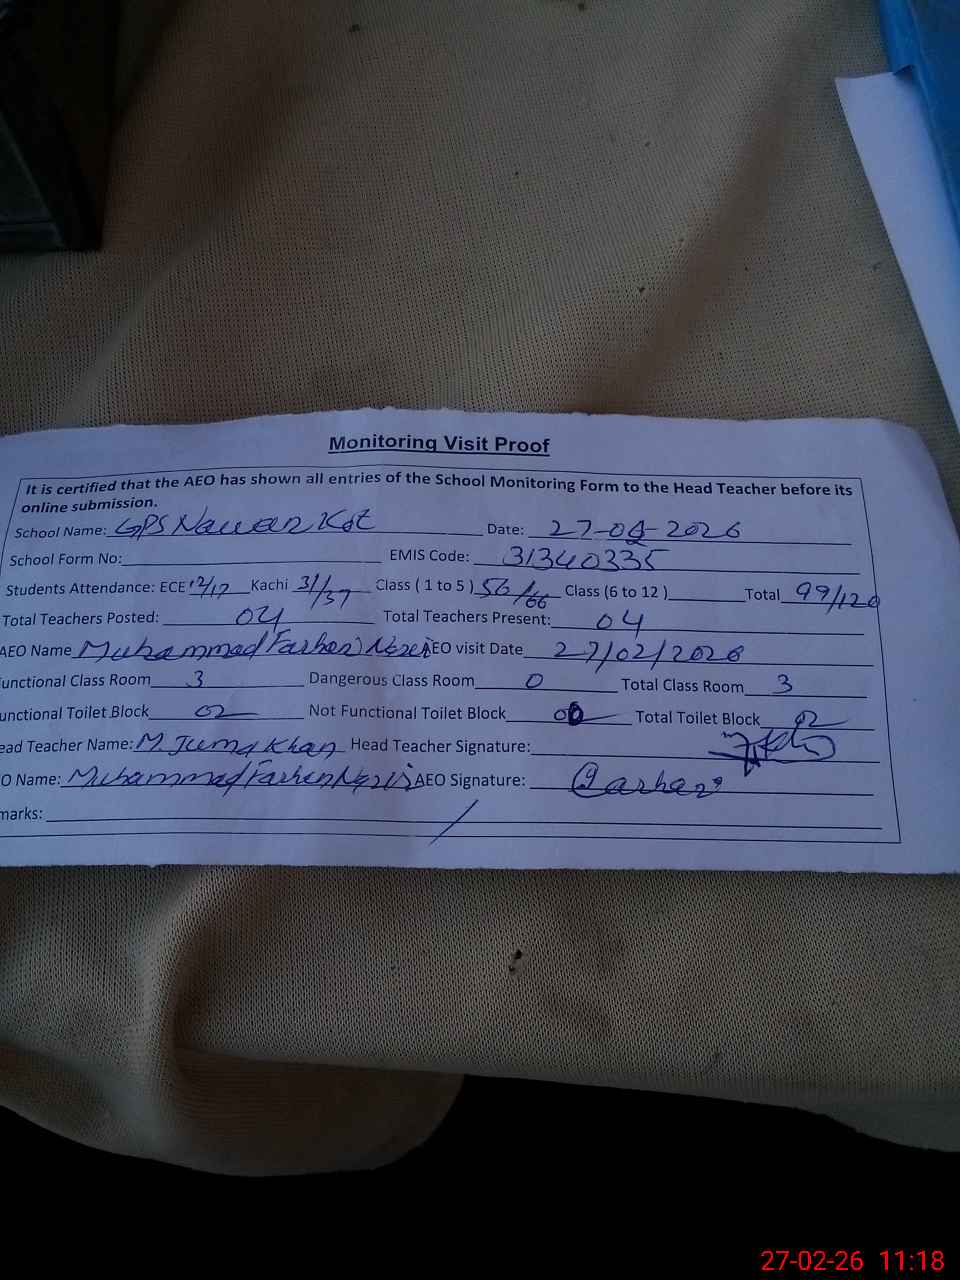 Monitoring Visit Proof
It is certified that the AEO has shown all entries of the School Monitoring Form to the Head Teacher before its
online submission.
School Name: GPS Nawan Kot Date: 27-02-2026
School Form No: EMIS Code: 31340335
Students Attendance: ECE 12/17 Kachi 31/37 Class ( 1 to 5 ) 56/66 Class (6 to 12 ) Total 99/120
Total Teachers Posted: 04 Total Teachers Present: 04
AEO Name Muhammad Farhan AEO visit Date 27/02/2026
unctional Class Room 3 Dangerous Class Room 0 Total Class Room 3
unctional Toilet Block 02 Not Functional Toilet Block 00 Total Toilet Block 02
ead Teacher Name: M. Juma Khan Head Teacher Signature:
O Name: Muhammad Farhan AEO Signature: Farhan
marks:
27-02-26 11:18